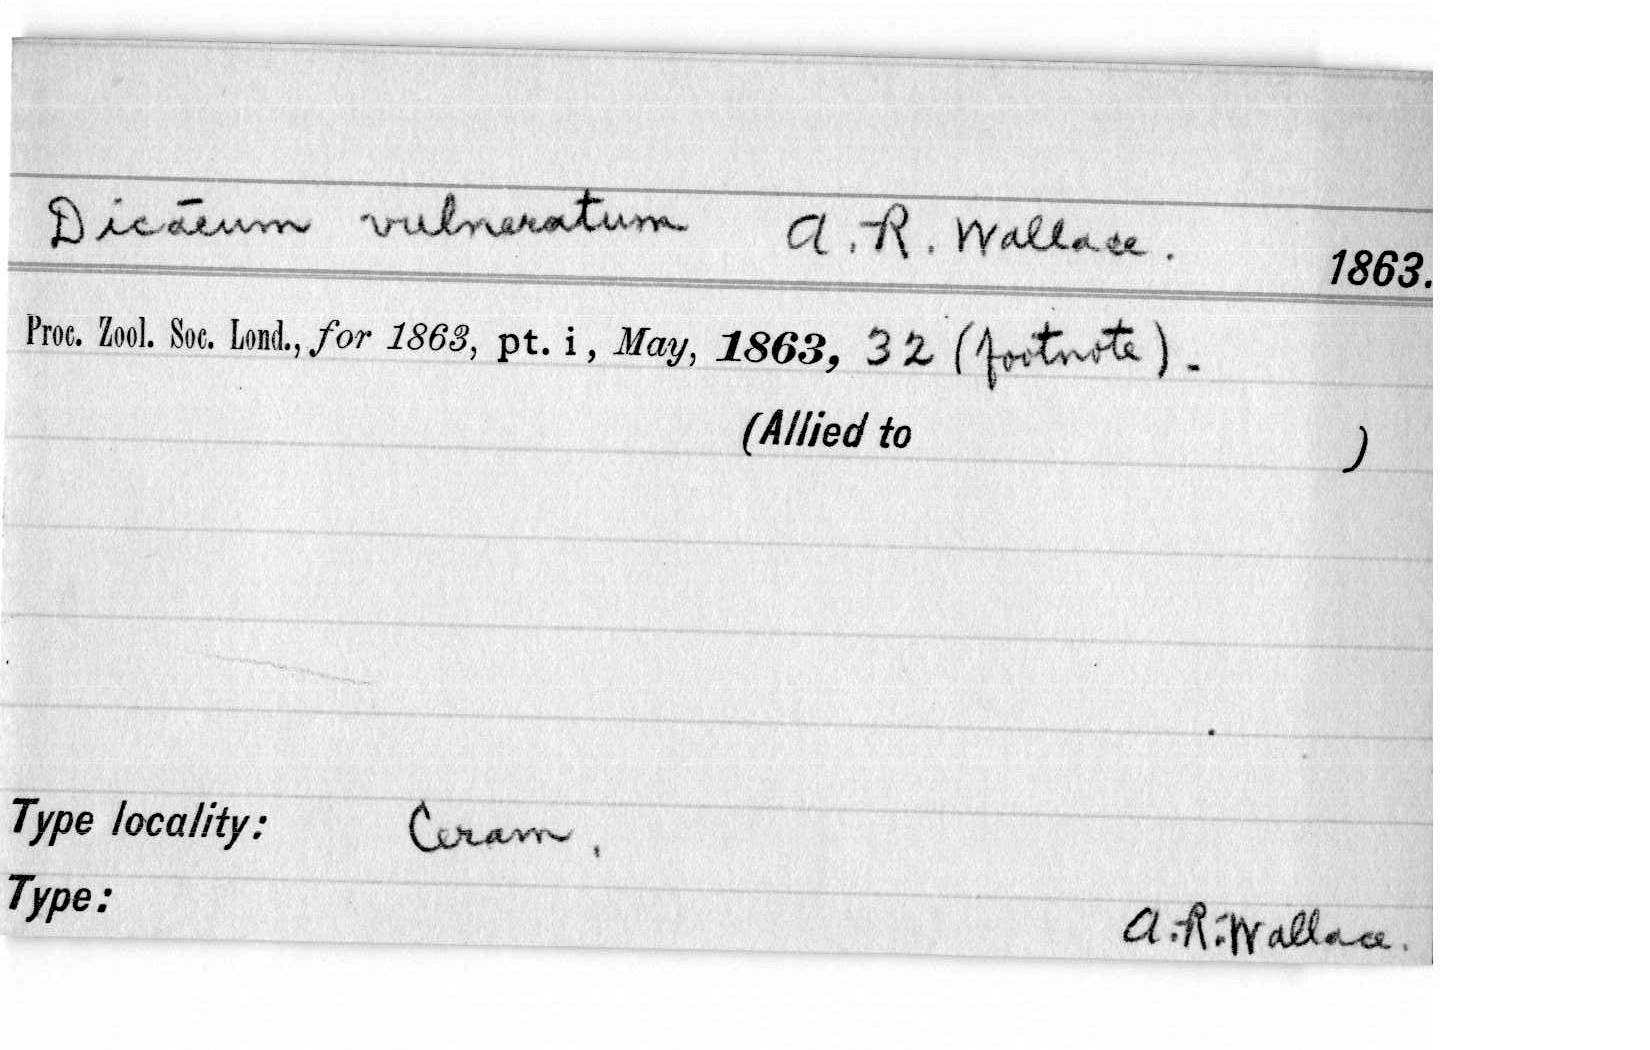 Dicaeum vulneratum A. R. Wallace. 1863.
Proc. Zool. Soc. Lond., for 1863, pt. i, May, 1863, 32 (footnote).
(Allied to )
Type locality: Ceram.
Type:
A. R. Wallace.